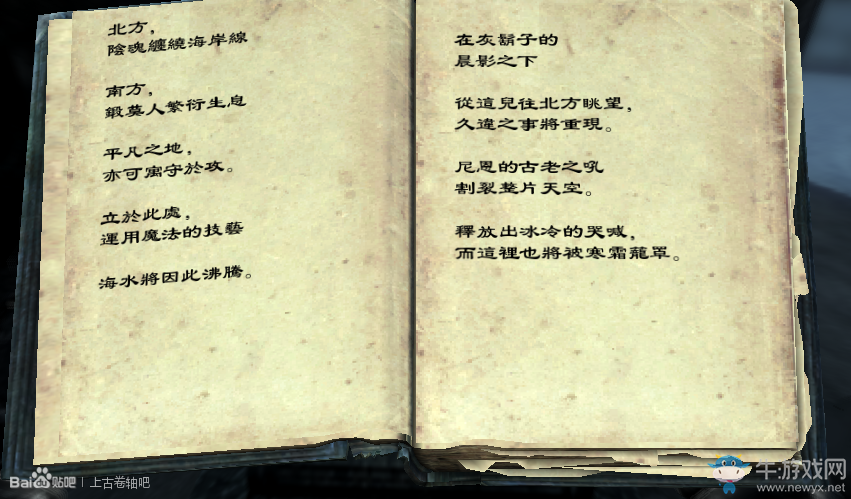 北方,
陰魂纏繞海岸線
南方,
鍛莫人繁衍生息
平凡之地,
亦可寓守於攻。
立於此處,
運用魔法的技藝
海水將因此沸騰。
在灰鬍子的
晨影之下
從這兒往北方眺望,
久違之事將重現。
尼恩的古老之吼
割裂整片天空。
釋放出冰冷的哭喊,
而這裡也將被寒霜蘢罩。
Bai du 贴吧 | 上古卷轴吧
牛游戏网
www.newyx.net